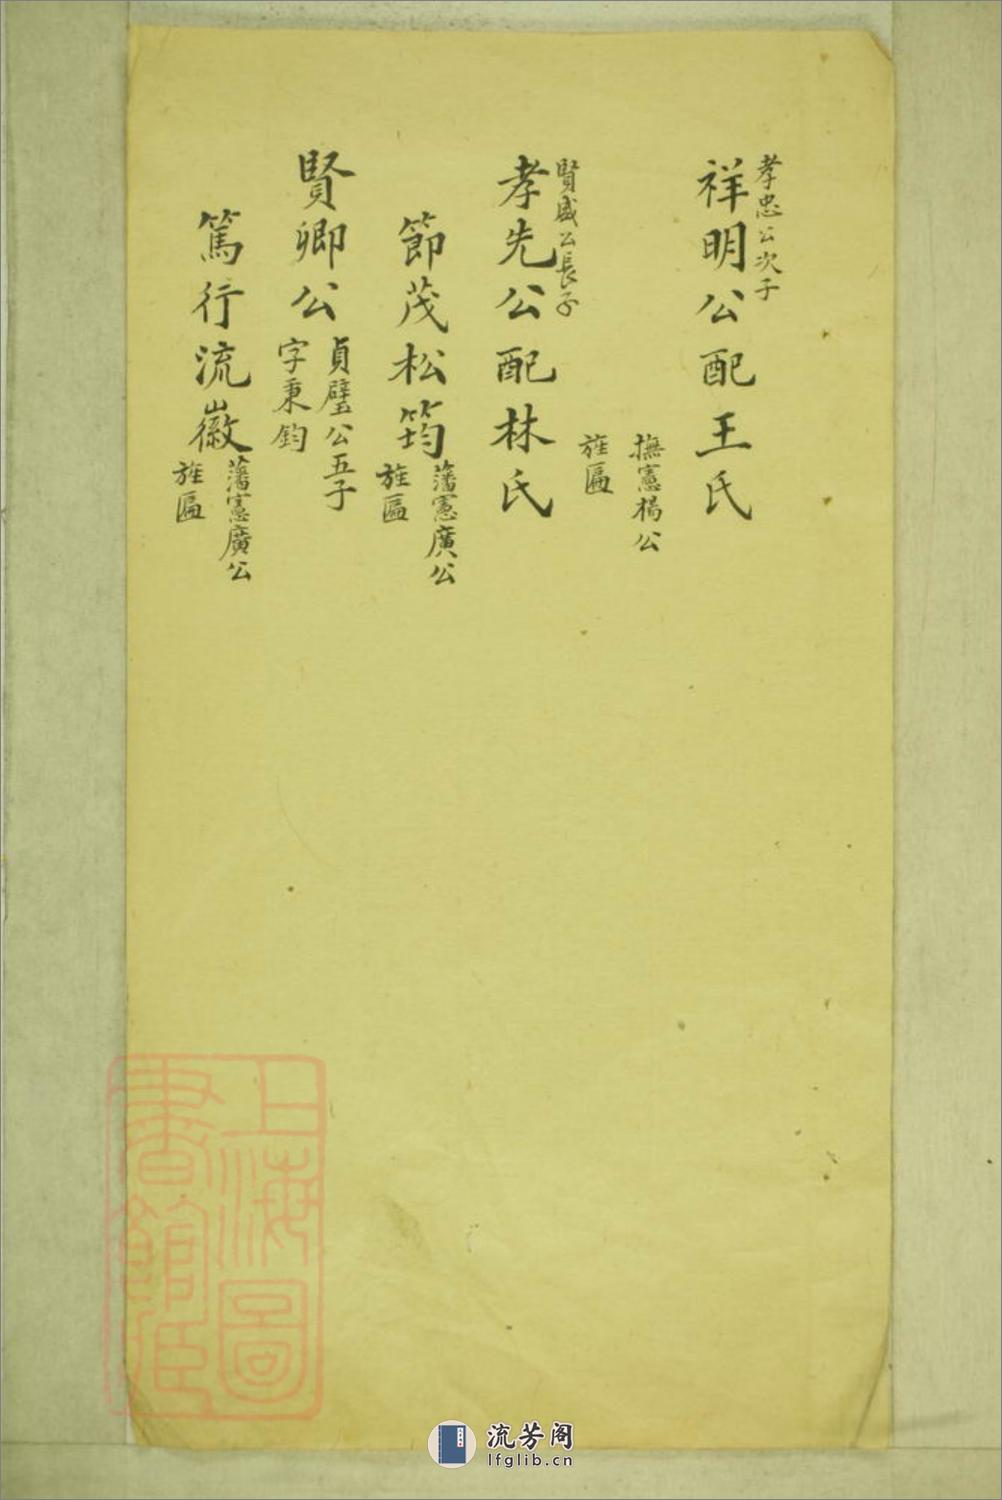 孝忠公次子
祥明公配王氏
撫憲楊公
旌匾
賢盛公長子
孝先公配林氏
節茂松筠
藩憲廣公
旌匾
賢卿公
貞璧公五子
字秉鈞
篤行流徽
藩憲廣公
旌匾
上海圖
書館藏
流芳阁
lfglib.cn